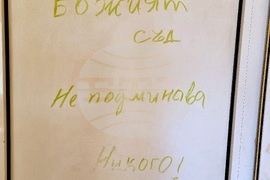 БОЖИЯТ
СЪД
Не подминава
Никого!